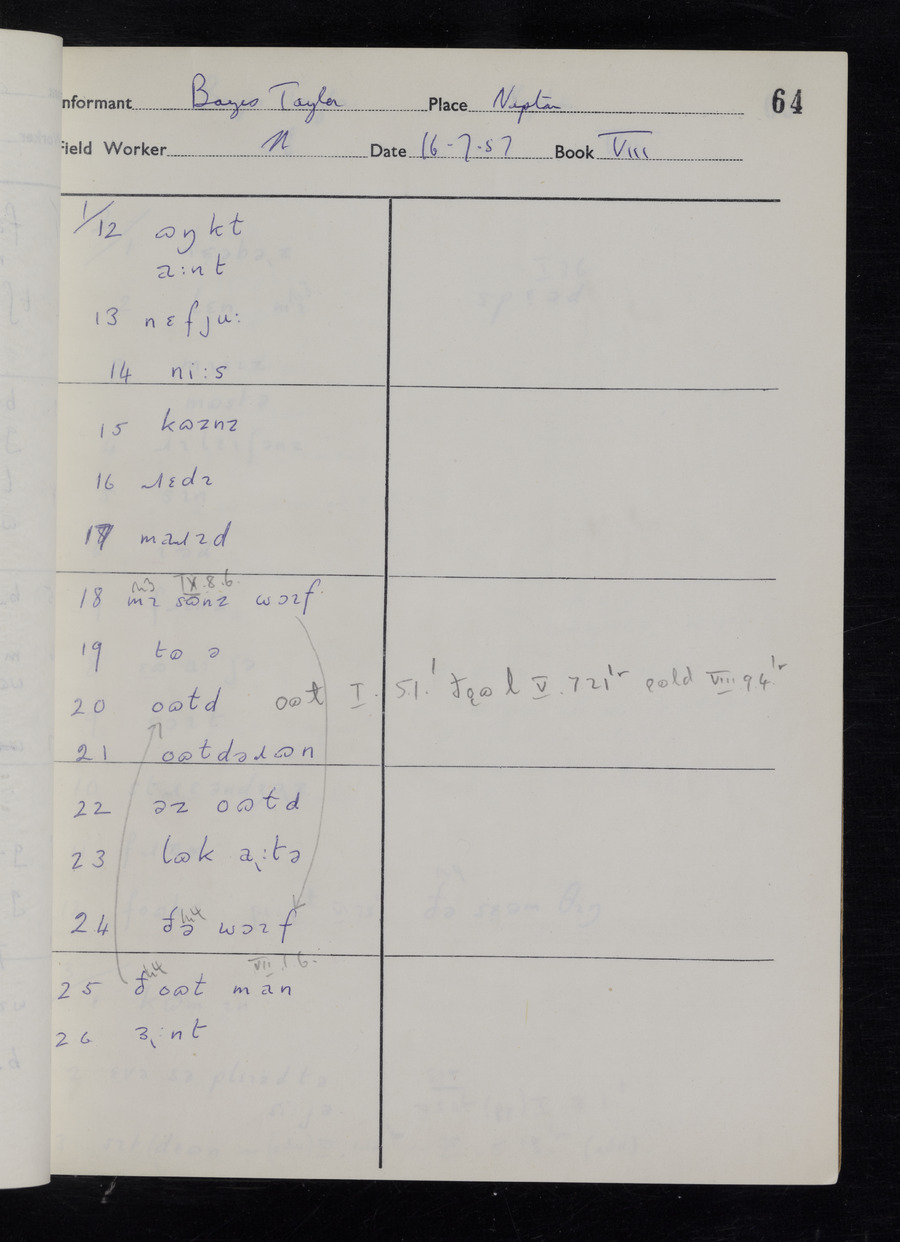 Informant Bayes Taylor Place Nepton 64
Field Worker N Date 16-7-57 Book VIII
1/12 ɷŋkt
a:nt
13 nɛfju:
14 ni:s
15 kɷznz
16 ɹɛdɪ
17 maɹɪd
18 wəɪf
19 tɷ ə
20 oɷtd oɷt I.51.1 V.721 ɐold VIII 94
21 oɷtdəɹɷn
22 əz oɷtd
23 lɷk a:tə
24 ðə wəɪf
VII.16.
25 ð oɷt man
26 ɜ:nt